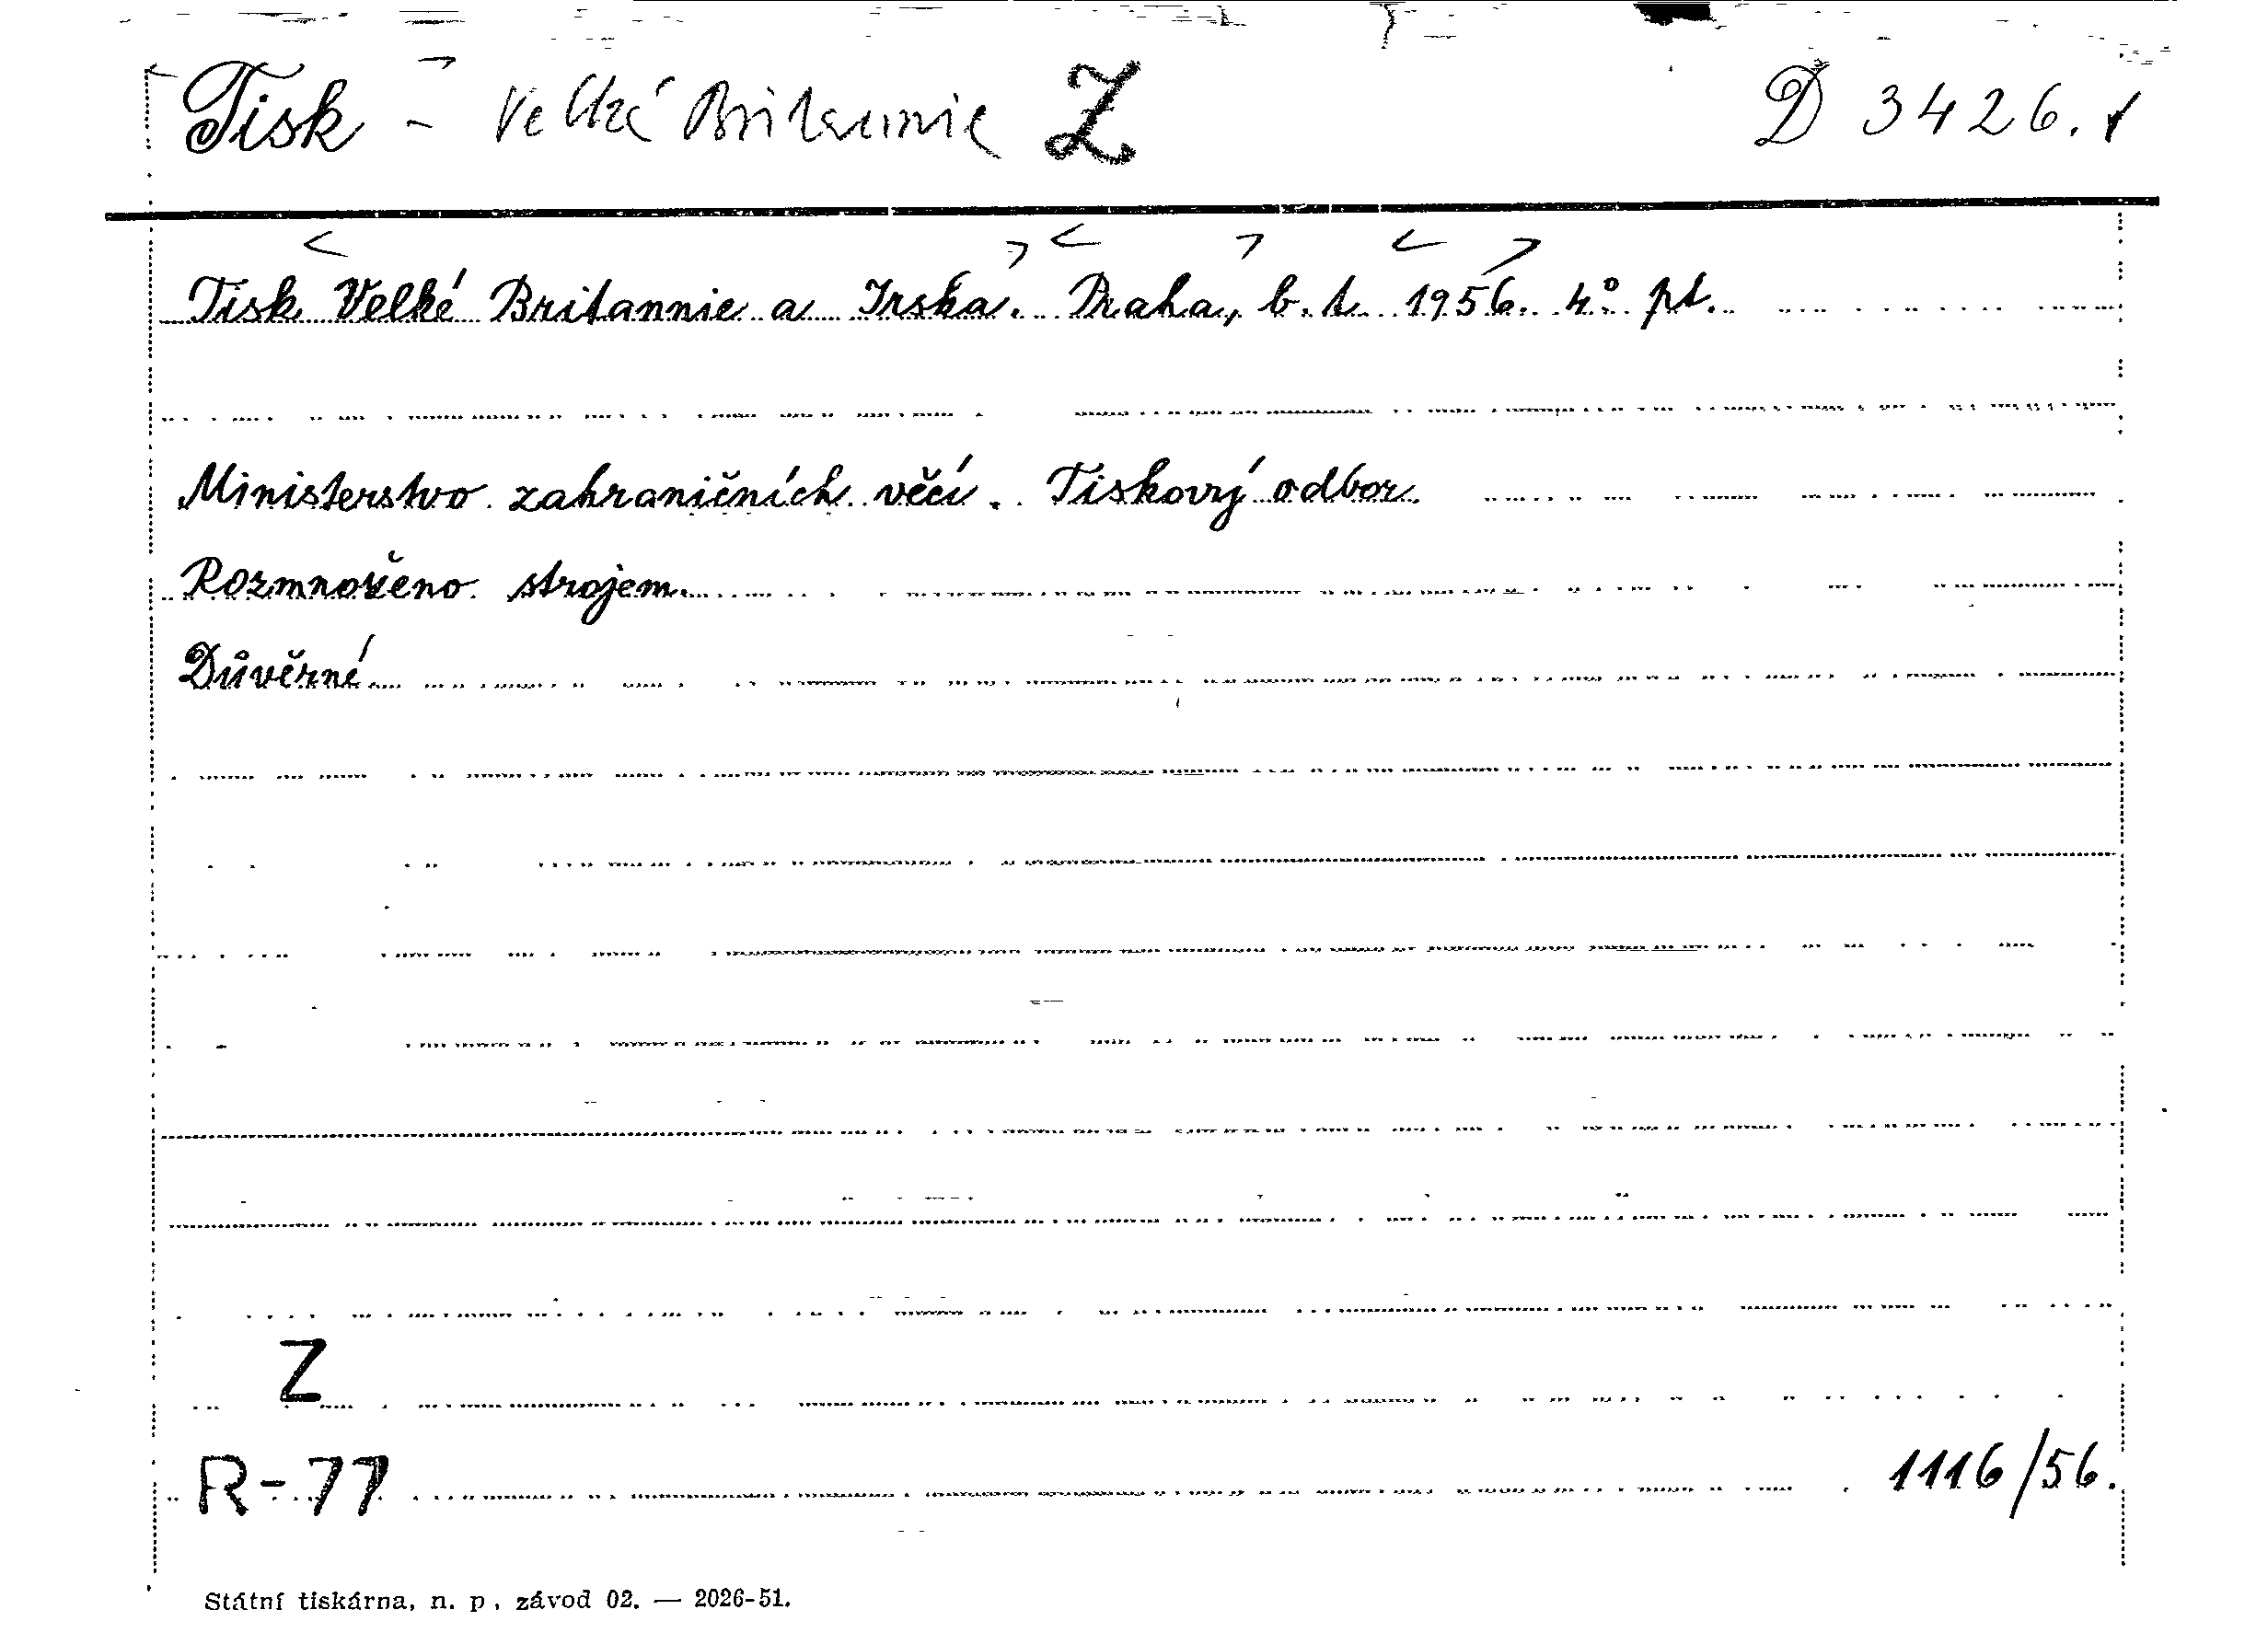 Tisk - Velká Britannie Z D 3426.
Tisk Velké Britannie a Irska. Praha, b. t. 1956. 4° pt.
Ministerstvo zahraničních věcí. Tiskový odbor.
Rozmnoženo strojem.
Důvěrné.
Z
R-77 1116/56.
Státní tiskárna, n. p., závod 02. — 2026-51.